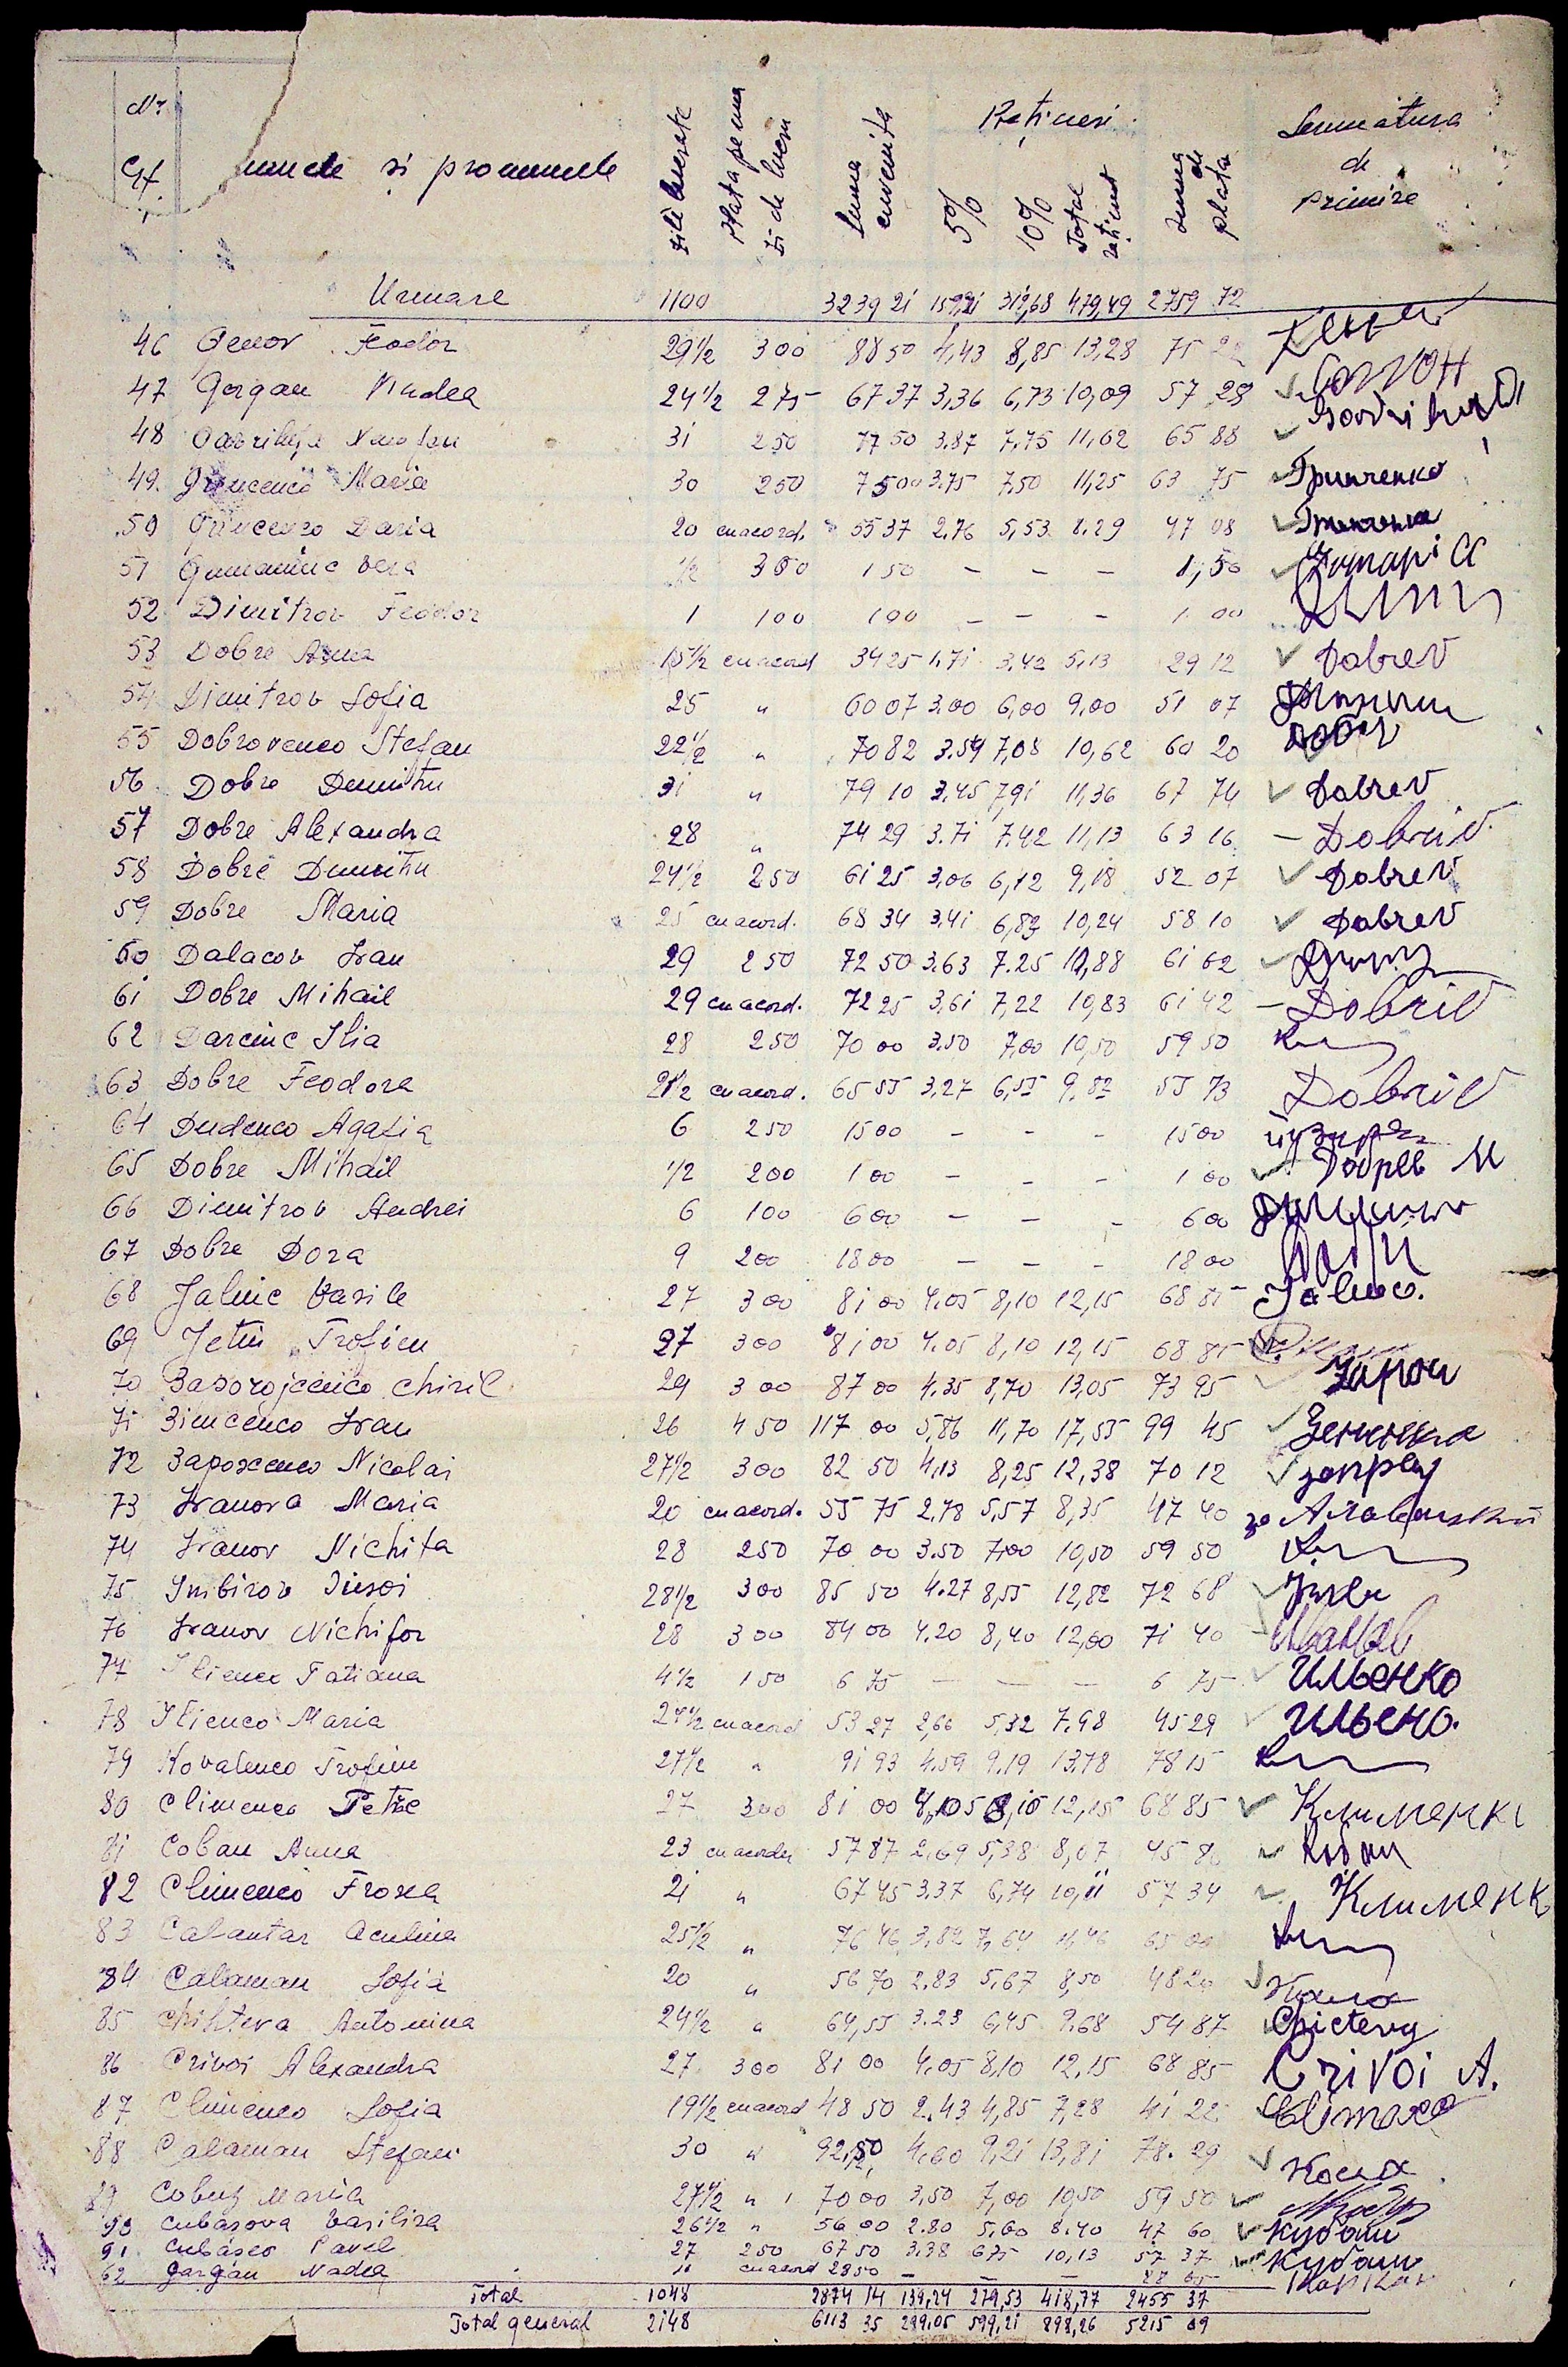 Nr.
Crt.
numele si pronumele
zile lucrate
Plata pe una zi de lucru
Suma cuvenita
Rețineri
5%
10%
Total reținut
Suma de plata
Semnatura de primire
Urmare 1100 3239 21 319,68 479,49 2759 72
46 Feodor 29 1/2 300 88 50 4,43 8,85 13,28 75
47 Gorgan 24 1/2 275 67 37 3,36 6,73 10,09 57 28
48 31 250 77 50 3.87 7,75 11,62 65 88
49 Maria 30 250 75 00 3.75 7,50 11,25 63 75 Гринченко
50 Daria 20 cu acord. 55 37 2.76 5,53 8.29 47 08
51 1/2 300 1 50 – – – 1,50
52 Dimitrov Feodor 1 100 1 00 – – – 1 00
53 Dobre Anna 15 1/2 cu acord 34 25 1.71 3,42 5,13 29 12 Dobrev
54 Dimitrov Sofia 25 " 60 07 3.00 6,00 9,00 51 07
55 Dobrovenco Stefan 22 1/2 " 70 82 3.54 7,08 10,62 60 20
56 Dobre Dumitru 31 " 79 10 3.45 7,91 11,36 67 74 Dobrev
57 Dobre Alexandra 28 " 74 29 3.71 7.42 11,13 63 16 – Dobriv
58 Dobre Dumitru 24 1/2 250 61 25 3,06 6,12 9,18 52 07 Dobrev
59 Dobre Maria 25 cu acord. 68 34 3.41 6,83 10,24 58 10 Dobrev
60 Dalacov Ivan 29 250 72 50 3.63 7.25 10,88 61 62
61 Dobre Mihail 29 cu acord. 72 25 3,61 7,22 10,83 61 42 – Dobriv
62 Darciuc Ilia 28 250 70 00 3.50 7,00 10,50 59 50
63 Dobre Feodora cu acord. 65 55 3,27 6,55 9.82 55 73 Dobriv
64 Dudenco Agafia 6 250 15 00 – – – 15 00
65 Dobre Mihail 1/2 200 1 00 – – – 1 00 Добрев М
66 Dimitrov Andrei 6 100 6 00 – – – 6 00
67 Dobre Dora 9 200 18 00 – – – 18 00
68 Jalnic Vasile 27 300 81 00 4.05 8,10 12,15 68 85
69 Trofim 27 300 81 00 4.05 8,10 12,15 68 85
70 Zaporojcenco Chiril 29 300 87 00 4.35 8,70 13,05 73 95
71 Zimcenco Ivan 26 450 117 00 5,86 11,70 17,55 99 45
72 Nicolai 27 1/2 300 82 50 4,13 8,25 12,38 70 12
73 Ivanova Maria 20 cu acord. 55 75 2.78 5,57 8,35 47 40
74 Ivanov Nichita 28 250 70 00 3.50 7,00 10,50 59 50
75 Imbirov 28 1/2 300 85 50 4.27 8,55 12,82 72 68
76 Ivanov Nichifor 28 300 84 00 4.20 8,40 12,60 71 40 Иванов
77 Tatiana 4 1/2 150 6 75 – – – 6 75 Ильенко
78 Ilienco Maria cu acord 53 27 2,66 5,32 7.98 45 29 Ильено.
79 Kovalenco Trofim 27 1/2 " 91 93 4.59 9.19 13.78 78 15
80 Climenco Petre 27 300 81 00 4,05 8,10 12,15 68 85
81 Coban Anna 23 cu acord 57 87 2,69 5,38 8,07
82 Climenco Frosea 21 " 67 45 3.37 6,74 10,11 57 34 Клименк
83 Calantar Aculina 25 1/2 " 76 46 3,82 7,64 11,46 65 00
84 Calaman Sofia 20 " 56 70 2.83 5,67 8,50 48 20
85 Antonina 24 1/2 " 64,55 3.23 6,45 9.68 54 87
86 Crivoi Alexandra 27 300 81 00 4.05 8,10 12,15 68 85 Crivoi A.
87 Climenco Sofia 19 1/2 cu acord 48 50 2.43 4,85 7,28 41 22
88 Calaman Stefan 30 " 92,50 4.60 9,21 13,81 78.29
89 Maria 27 1/2 " 70 00 3,50 7,00 10,50 59 50
90 Cubasova Vasilisa 26 1/2 " 56 00 2.80 5,60 8.40 47 60
91 Pavel 27 250 67 50 3,38 6.75 10,13 57 37
62 Gargan Nadea cu acord 28 50 – – –
Total 1048 2874 14 139,24 279,53 418,77 2455 37
Total general 2148 6113 35 299.05 599,21 898,26 5215 09